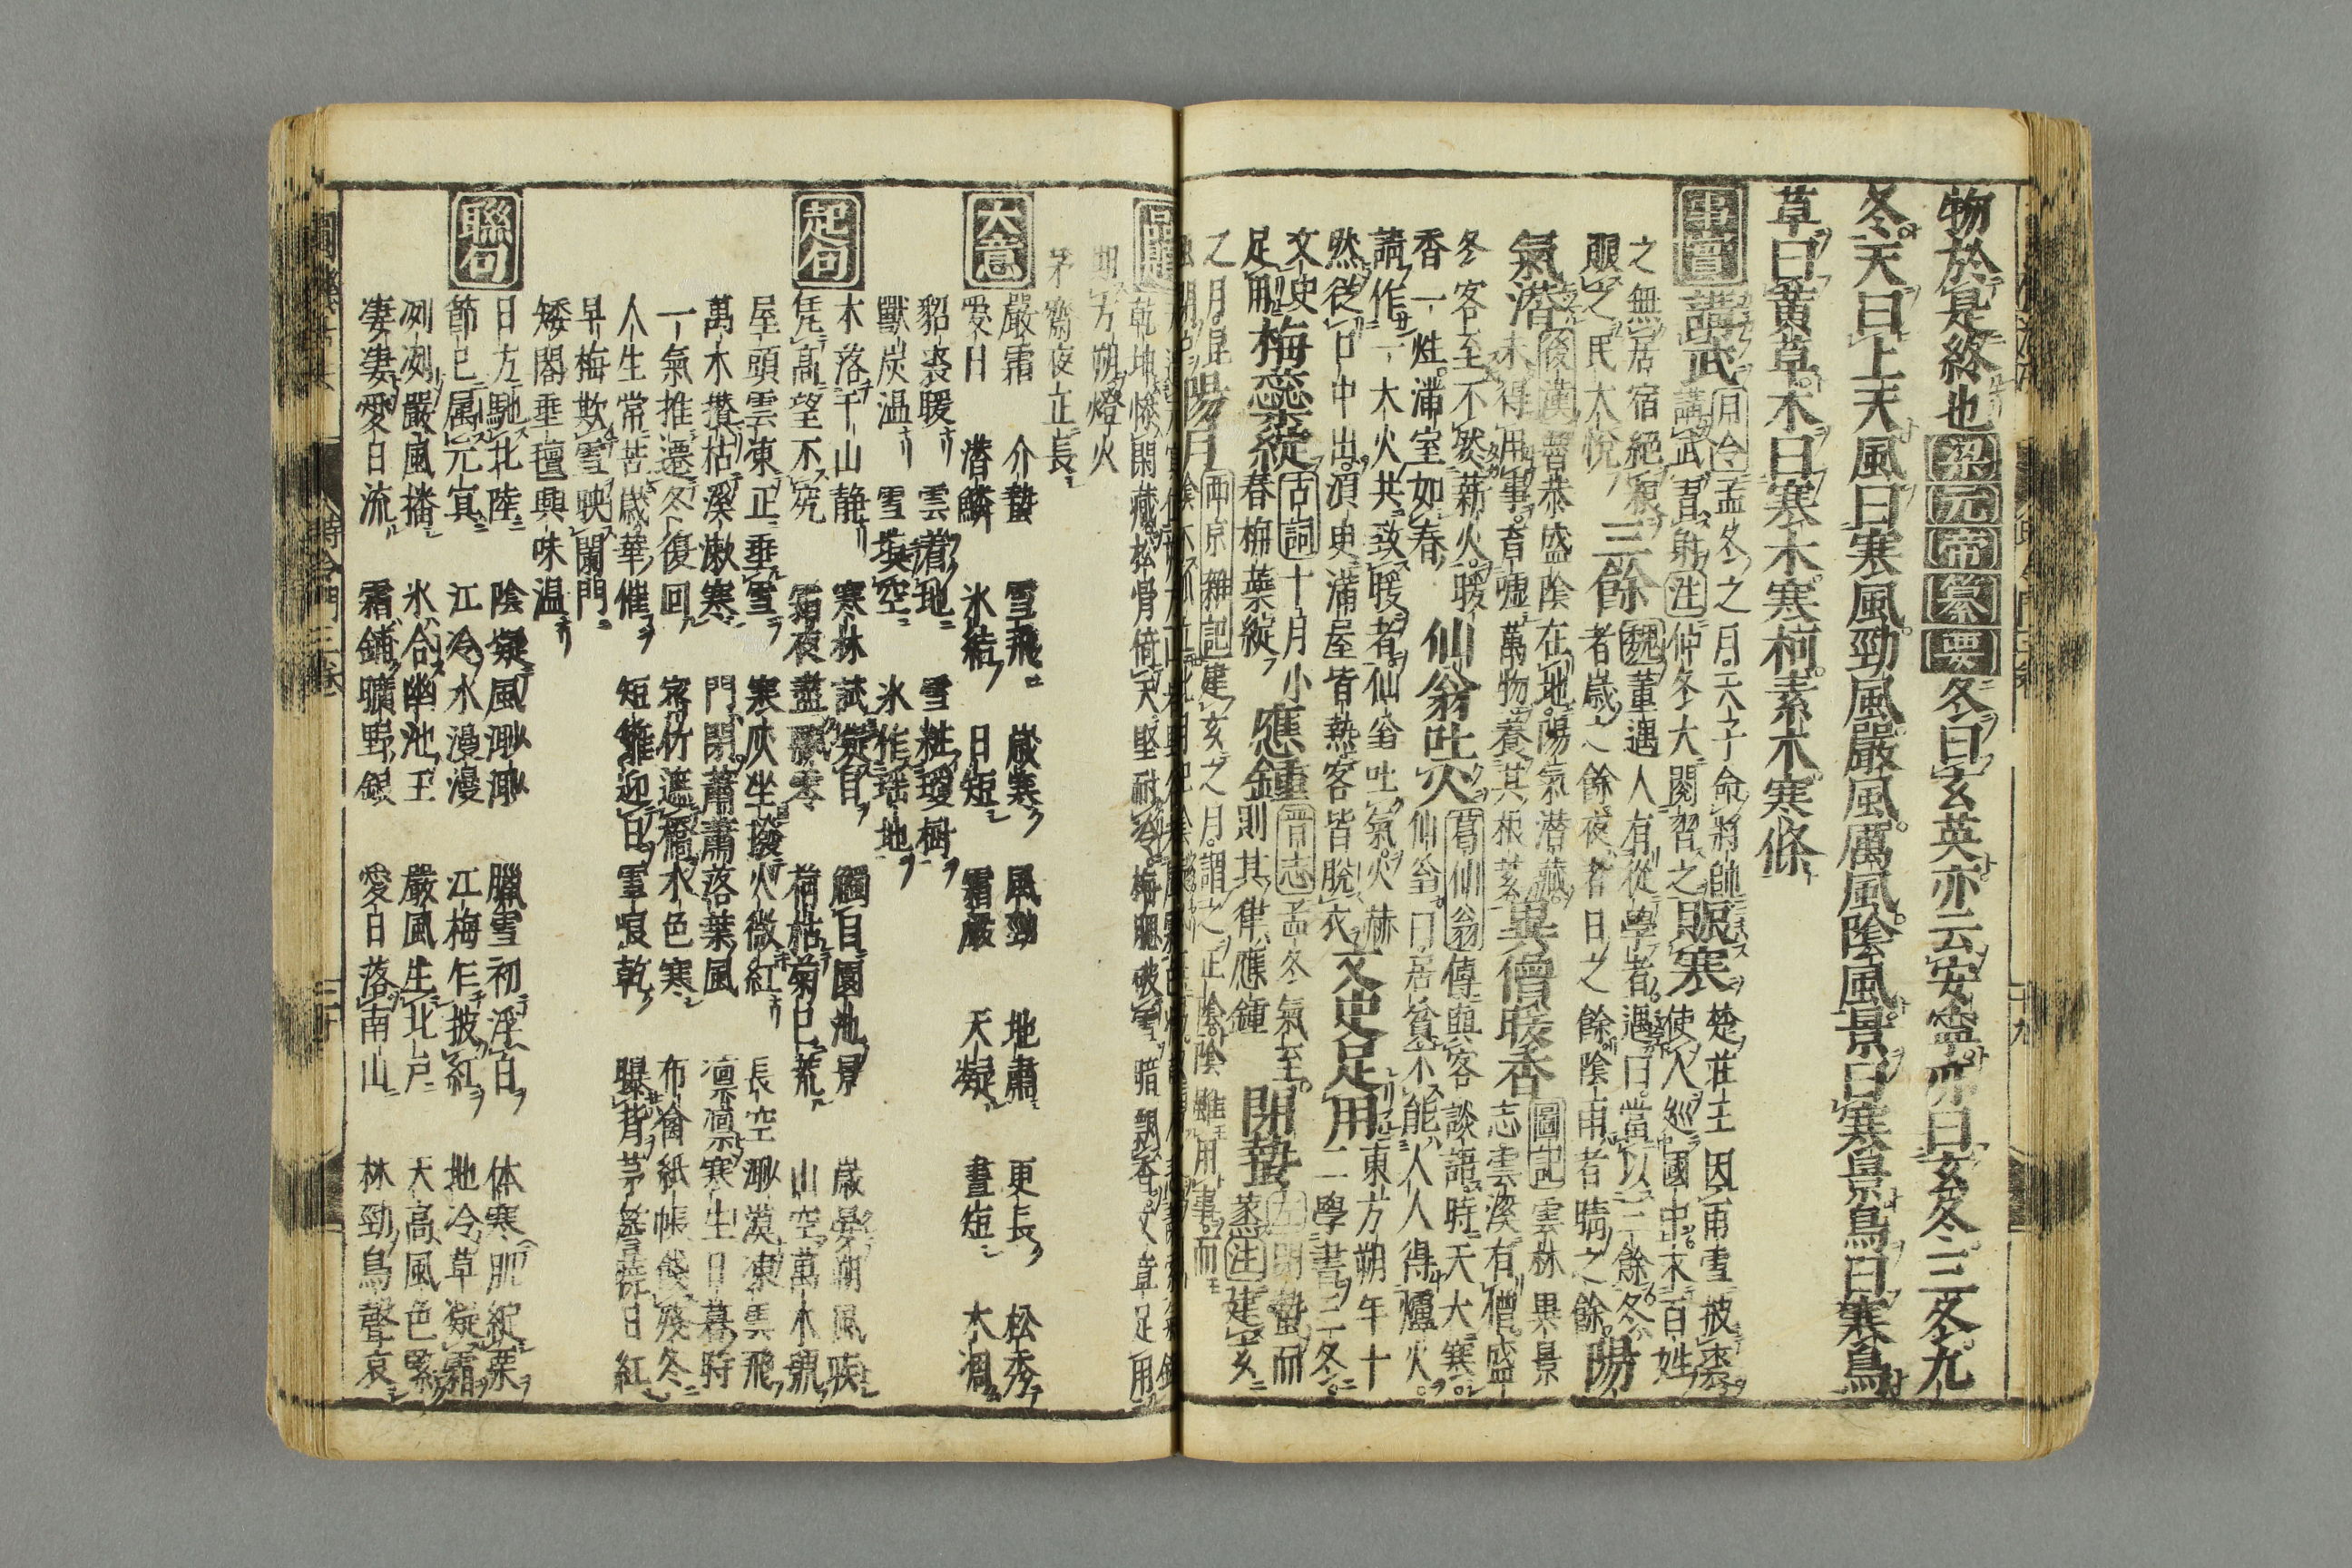 物於是終也梁元帝纂要冬曰玄英亦云安寧亦曰玄冬三冬九
冬天曰上天風曰寒風勁風嚴風厲風陰風景曰寒景鳥曰寒鳥
草曰黃草木曰寒木寒柯素木寒條
事實
講武
月令孟冬之月天子命將帥
講武習射注仲冬大閱習之
賑寒
楚莊王因雨雪披裘
使人巡國中求百姓
之無居宿絕粮
賑之民大悅
三餘
魏董遇人有從學者遇曰當以三餘冬
者歲之餘夜者日之餘陰雨者晴之餘
陽
氣潛
後漢晉恭盛陰在地陽氣潛藏
未得用事育噓萬物養其根荄
異僧暖香
圖記雲林異景
志雲溪有僧盛
冬客至不然薪火暖
香一炷滿室如春
仙翁吐火
葛仙翁傳與客談語時天大寒
仙翁曰居貧不能人人得爐火
請作一大火共致暖者仙翁吐氣火赫
然從口中出須臾滿屋皆熱客皆脫衣
文史足用
東方朔年十
二學書三冬
文史
足用
梅蕊綻
古詞十月小
春梅葉綻
應鍾
晉志孟冬氣至
則其律應鍾
閉蟄
左閉蟄而
蒸注建亥
之月
陽月
西京雜記建亥之月謂之正陰陰雖用事而
品題
乾坤慘閑藏松骨倚天堅耐冷梅腮破雪暗飄香文章足用
期方朔燈火
茅齋夜正長
大意
嚴霜 介蟄 雪飛 歲寒 風勁 地肅 更長 松秀
愛日 潛鱗 氷結 日短 霜嚴 天凝 晝短 木凋
貂裘暖 雲着地 雪粧瓊樹
獸炭温 雪填空 氷作瑤地
起句
木落千山静 寒林試凝目 觸目園池景 歲晏朔風疾
凭高望不窮 霜夜盡飄零 荷枯菊已荒 山空萬木號
屋頭雲東正垂雪 寒灰坐撥火微紅 長空溯漠凍雲飛
萬木攢枯溪漱寒 門閉蕭蕭落葉風 凛凛寒生日暮時
一氣推遷冬復回 窓竹遮橋水色寒 布衾紙帳餞殘冬
人生常苦歲華催 短籬迎日雪痕乾 曝背茅簷聲日紅
早梅欺雪映闌門
矮閣垂氈興味温
聯句
日方馳北陸 陰凝風溯溯 臘雪初浮白 体寒肌綻粟
節已属元冥 江冷水漫漫 江梅乍披紅 地冷草凝霜
冽冽嚴風播 氷合幽池玉 嚴風生北戶 天高風色緊
凄凄愛日流 霜鋪曠野銀 愛日落南山 林勁鳥聲哀
時令門三卷
三十